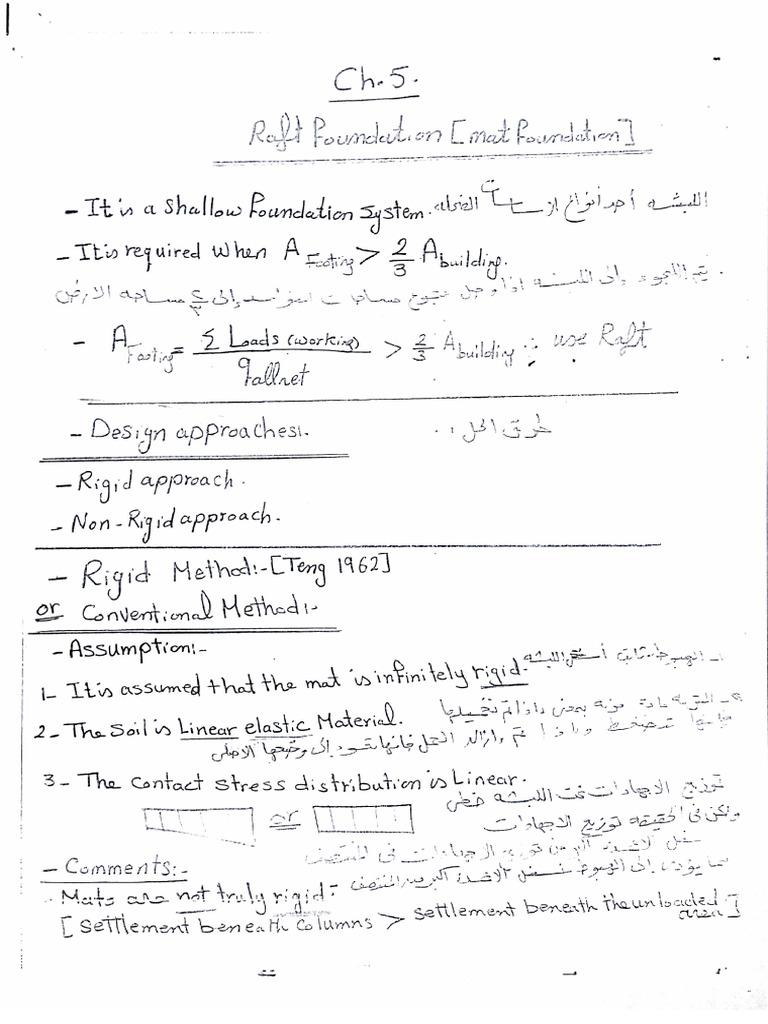 Ch.5.
Raft Foundation [mat Foundation]
- It is a shallow Foundation System. اللبشه أحد أنواع الأساسات الضحله
- It is required when A Footing > 2/3 A building.
يتم اللجوء إلى اللبشه اذا وصل مجموع مساحات القواعد إلى ⅔ مساحه الارض.
- A Footing = Σ Loads (working) / qallnet > 2/3 A building ∴ use Raft
- Design approaches:. طرق الحل:.
- Rigid approach.
- Non-Rigid approach.
- Rigid Method:-[Teng 1962]
or Conventional Method:-
- Assumption:-
1- It is assumed that the mat is infinitely rigid. ١- الهبوط ثابت أسفل اللبشه
2- The Soil is Linear elastic Material. ٢- التربه مادة مرنه بمعنى اذا تم تحميلها
فإنها تنضغط وإذا تم إزاله الحمل فإنها تعود إلى وضعها الاصلى
3- The Contact Stress distribution is Linear. توزيع الاجهادات تحت اللبشه خطى
or
ولكن فى الحقيقه توزيع الاجهادات
أسفل الاعمدة أكبر من توزيع الاجهادات فى المنتصف
- Comments:-
مما يؤدى إلى الهبوط أسفل الاعمدة أكبر من المنتصف
- Mats are not truly rigid
[Settlement beneath Columns > Settlement beneath the unloaded area]